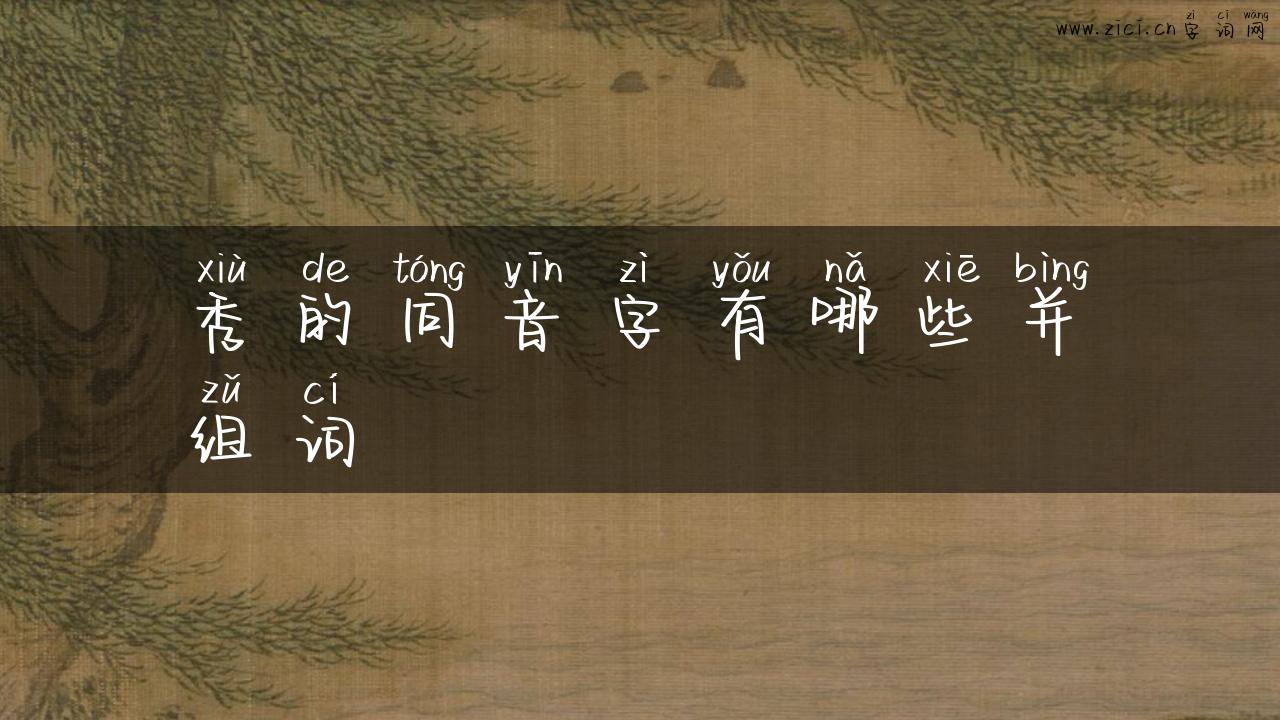 zì cí wǎng
www.zici.cn 字词网
xiù de tóng yīn zì yǒu nǎ xiē bìng
秀的同音字有哪些并
zǔ cí
组词